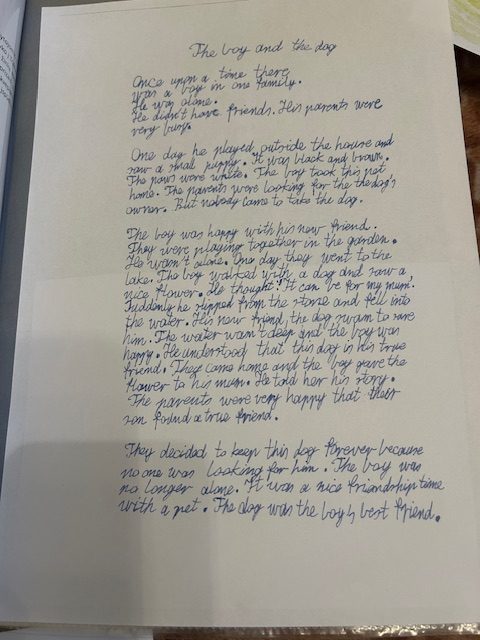 The boy and the dog
Once upon a time there
was a boy in one family.
He was alone.
He didn't have friends. His parents were
very busy.
One day he played outside the house and
saw a small puppy. It was black and brown.
The paws were white. The boy took this pet
home. The parents were looking for the dog's
owner. But nobody came to take the dog.
The boy was happy with his new friend.
They were playing together in the garden.
He wasn't alone. One day they went to the
lake. The boy walked with a dog and saw a
nice flower. He thought: "It can be for my mum.
Suddenly he slipped from the stone and fell into
the water. His new friend, the dog swam to save
him. The water wasn't deep and the boy was
happy. He understood that this dog is his true
friend. They came home and the boy gave the
flower to his mum. He told her his story.
The parents were very happy that their
son found a true friend.
They decided to keep this dog forever because
no one was looking for him. The boy was
no longer alone. It was a nice friendship time
with a pet. The dog was the boy's best friend.